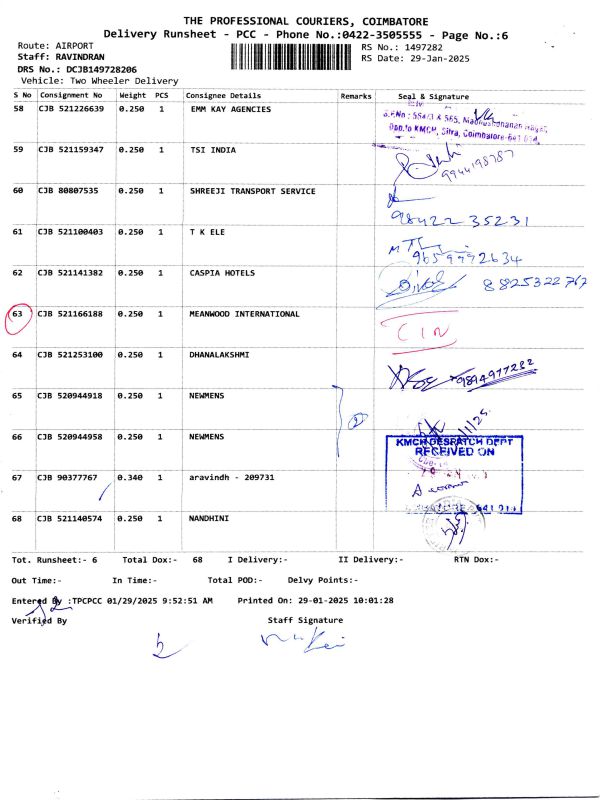 THE PROFESSIONAL COURIERS, COIMBATORE
Delivery Runsheet - PCC - Phone No.:0422-3505555 - Page No.:6
Route: AIRPORT RS No.: 1497282
Staff: RAVINDRAN RS Date: 29-Jan-2025
DRS No.: DCJB149728206
Vehicle: Two Wheeler Delivery
S No Consignment No Weight PCS Consignee Details Remarks Seal & Signature
58 CJB 521226639 0.250 1 EMM KAY AGENCIES
S.F.No : 554/3 & 565, Madhusudhanan Nagar,
Opp.to KMCH, Sitra, Coimbatore-641 014.
59 CJB 521159347 0.250 1 TSI INDIA
9944198787
60 CJB 80807535 0.250 1 SHREEJI TRANSPORT SERVICE
98422 35231
61 CJB 521100403 0.250 1 T K ELE
9659992634
62 CJB 521141382 0.250 1 CASPIA HOTELS 8825322767
63 CJB 521166188 0.250 1 MEANWOOD INTERNATIONAL
CIN
64 CJB 521253100 0.250 1 DHANALAKSHMI
9894977282
65 CJB 520944918 0.250 1 NEWMENS
2
66 CJB 520944958 0.250 1 NEWMENS
KMCH DESPATCH DEPT
RECEIVED ON
67 CJB 90377767 0.340 1 aravindh - 209731
68 CJB 521140574 0.250 1 NANDHINI
Tot. Runsheet:- 6 Total Dox:- 68 I Delivery:- II Delivery:- RTN Dox:-
Out Time:- In Time:- Total POD:- Delvy Points:-
Entered By :TPCPCC 01/29/2025 9:52:51 AM Printed On: 29-01-2025 10:01:28
Verified By Staff Signature